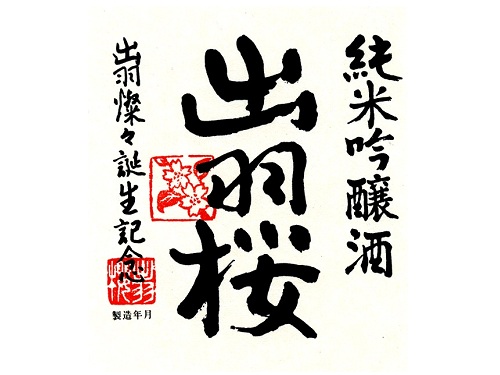 純米吟醸酒
出羽桜
出羽燦々誕生記念
製造年月